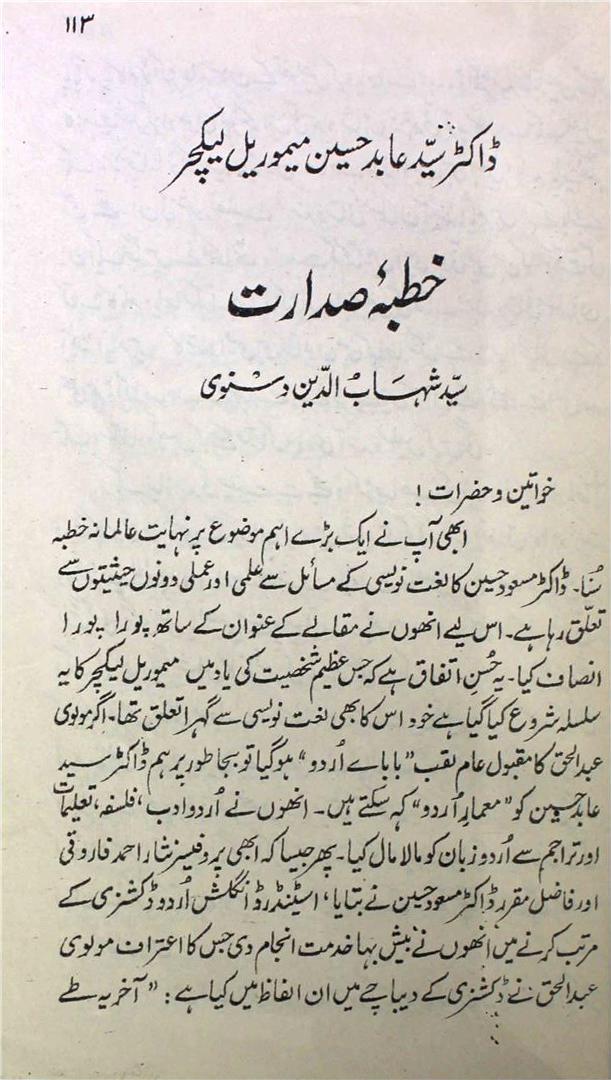 ۱۱۳
ڈاکٹر سیّد عابد حسین میموریل لیکچر
خطبۂ صدارت
سیّد شہابُ الدّین دسنوی
خواتین و حضرات !
ابھی آپ نے ایک بڑے اہم موضوع پر نہایت عالمانہ خطبہ
سُنا۔ ڈاکٹر مسعود حسین کا لغت نویسی کے مسائل سے علمی اور عملی دونوں حیثیتوں سے
تعلّق رہا ہے۔ اس لیے انھوں نے مقالے کے عنوان کے ساتھ پورا پورا
انصاف کیا۔ یہ حُسنِ اتفاق ہے کہ جس عظیم شخصیت کی یاد میں میموریل لیکچر کا یہ
سلسلہ شروع کیا گیا ہے خود اس کا بھی لغت نویسی سے گہرا تعلق تھا۔ اگر مولوی
عبدالحق کا مقبول عام لقب "بابائے اُردو" ہو گیا تو بجا طور پر ہم ڈاکٹر سید
عابد حسین کو "معمارِ اُردو" کہہ سکتے ہیں۔ انھوں نے اُردو ادب، فلسفہ، تعلیمات
اور تراجم سے اُردو زبان کو مالا مال کیا۔ پھر جیسا کہ ابھی پروفیسر نثار احمد فاروقی
اور فاضل مقرر ڈاکٹر مسعود حسین نے بتایا، اسٹینڈرڈ انگلش اُردو ڈکشنری کے
مرتب کرنے میں انھوں نے بیش بہا خدمت انجام دی جس کا اعتراف مولوی
عبدالحق نے ڈکشنری کے دیباچے میں ان الفاظ میں کیا ہے : "آخر یہ طے